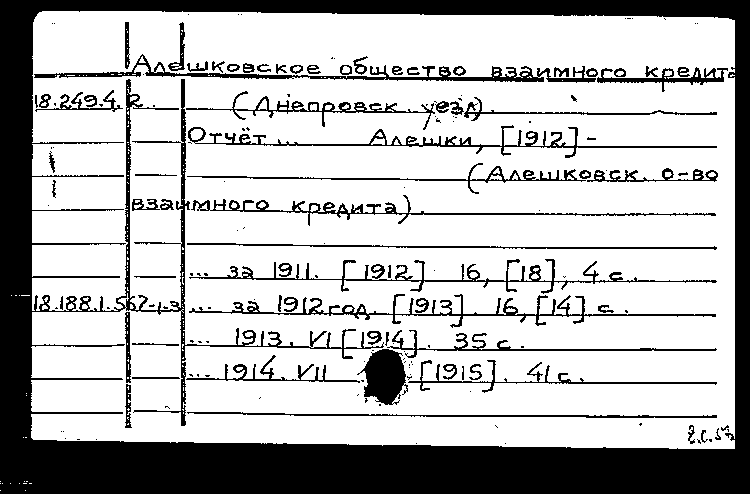 Алешковское общество взаимного кредита
18.249.4.2. (Днепровск. уезд).
Отчёт ... Алешки, [1912] -
(Алешковск. о-во
взаимного кредита).
... за 1911. [1912] 16, [18], 4 с.
18.188.1.567-1-3 ... за 1912 год. [1913]. 16, [14] с.
... 1913. VI [1914]. 35 с.
... 1914. VII [1915]. 41 с.